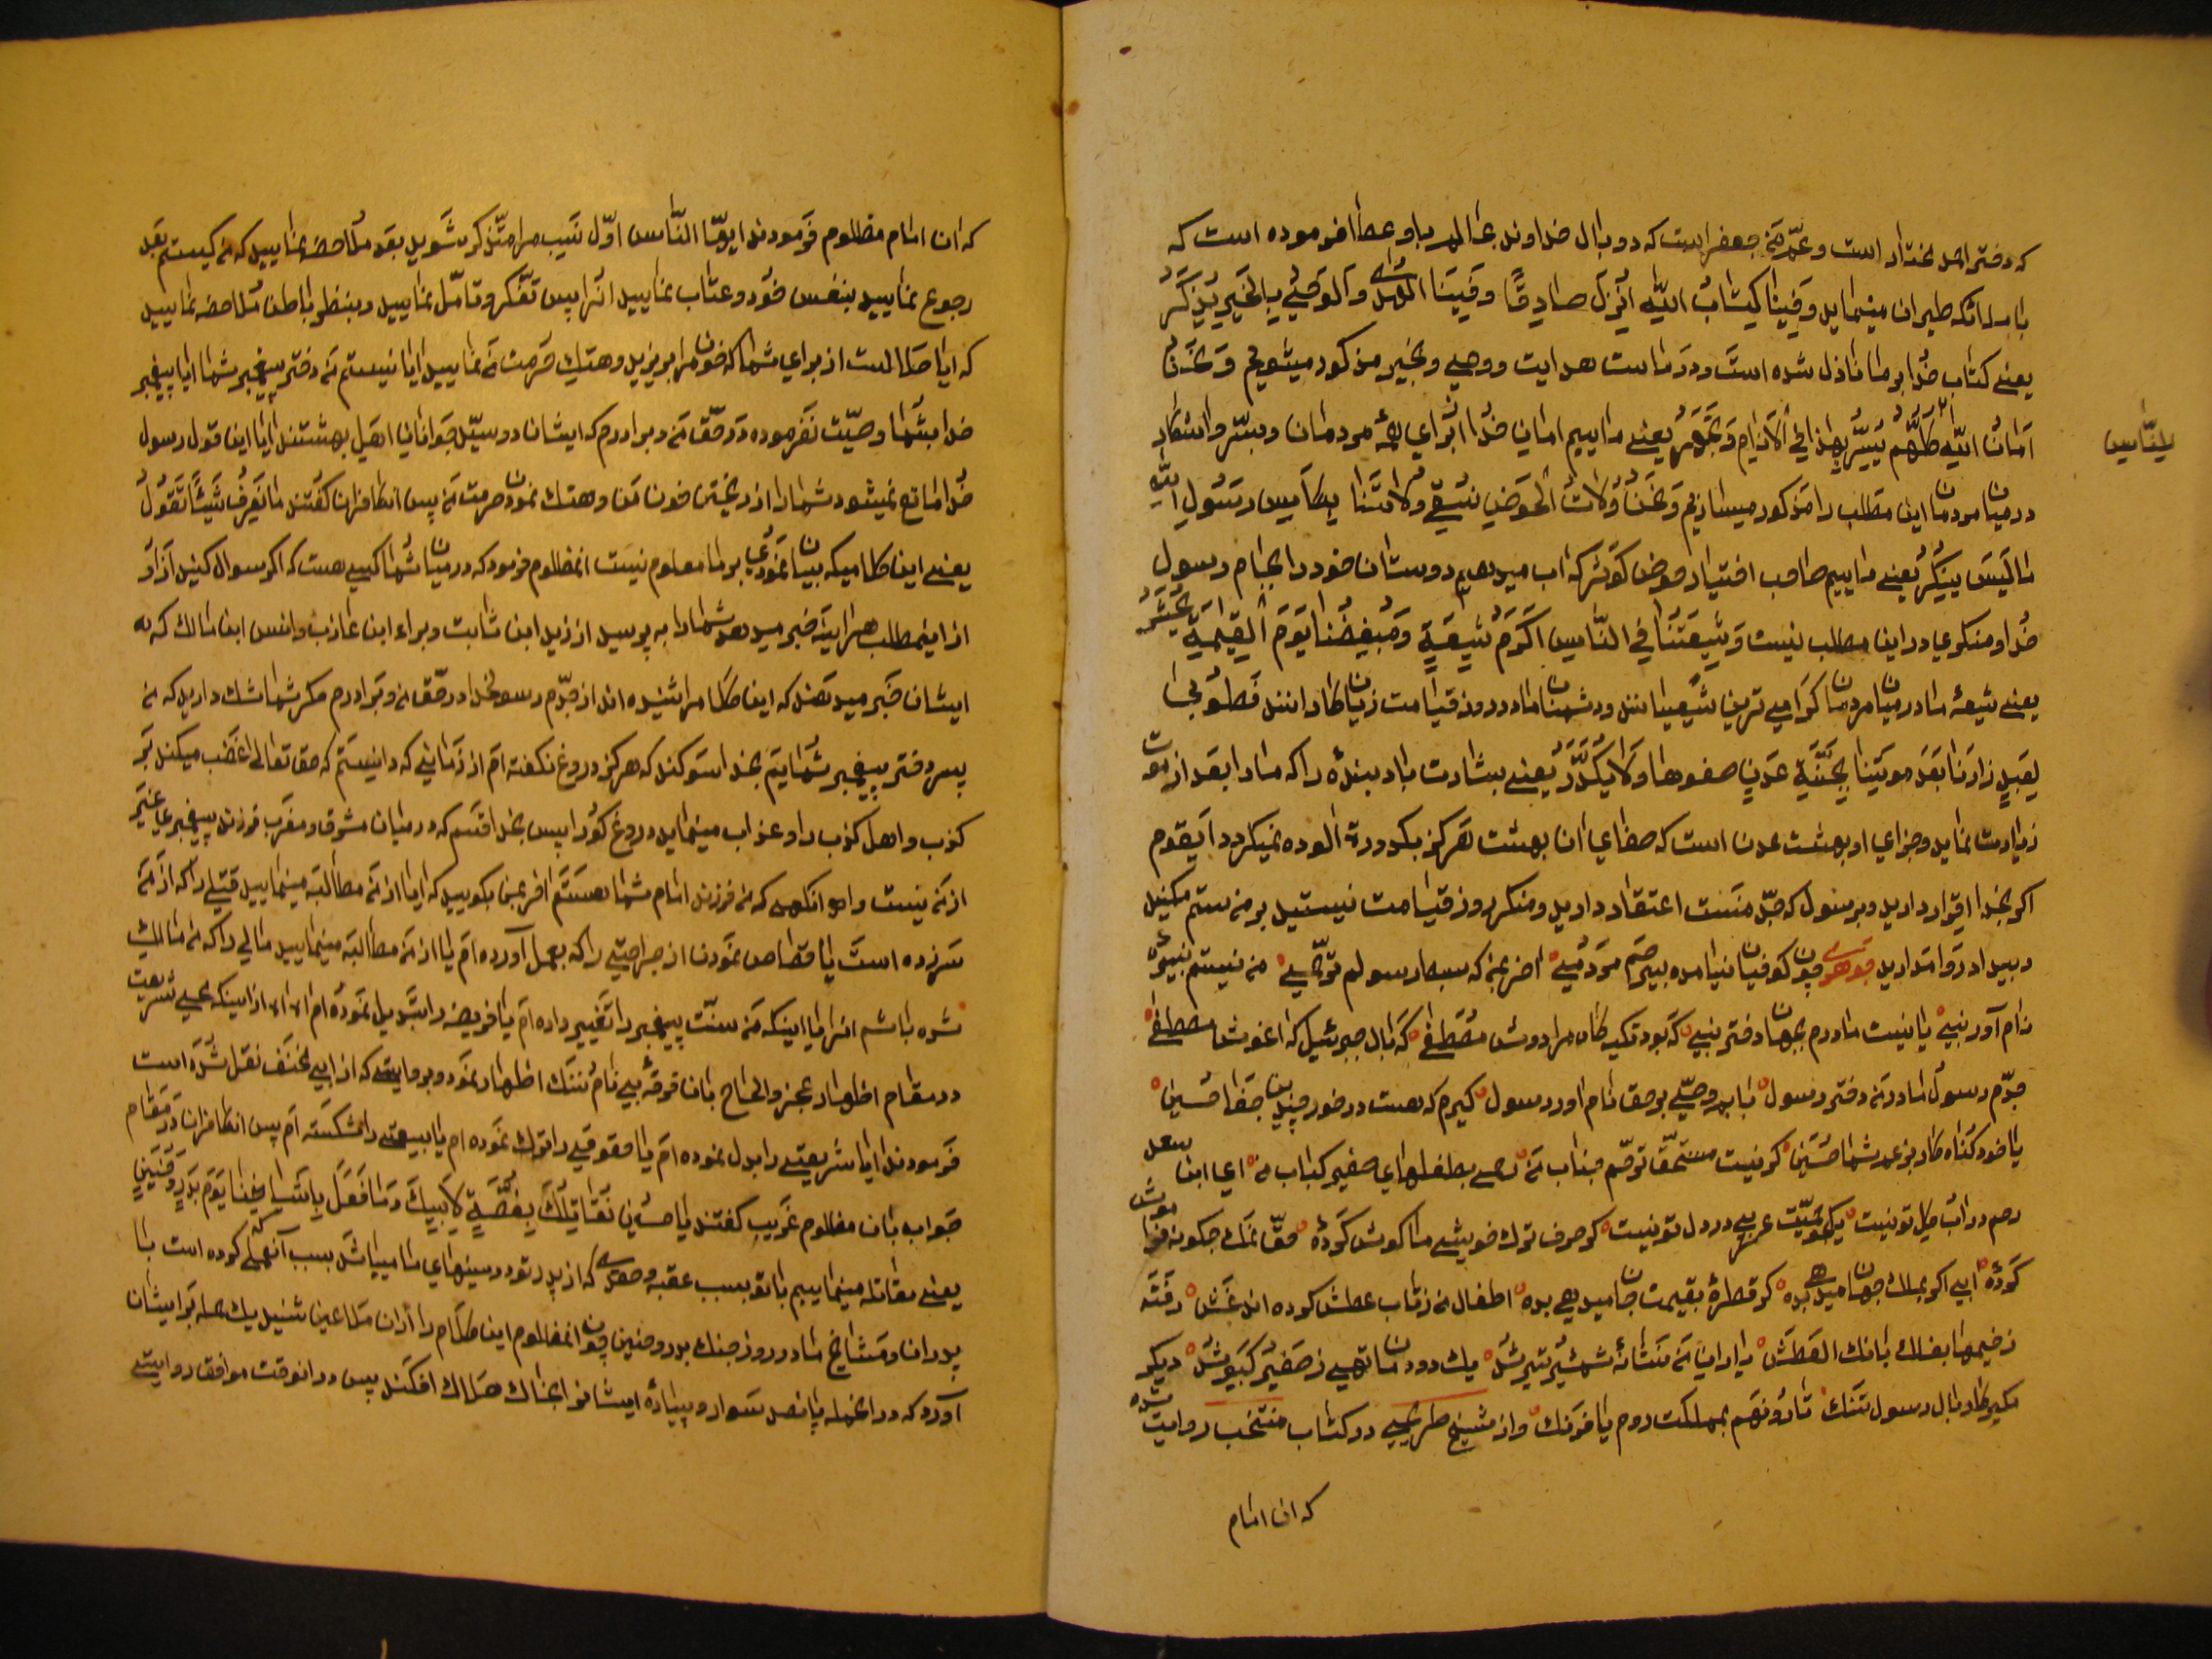 که دختر احمد مختار است و عم من جعفر است که دو بال خداوند عالم باو عطا فرموده است که
با ملائکه طیران مینماید وَفینا کِتابُ اللّه اُنزِلَ صادِقًا وَفینَا الهُدی وَالوَحیُ بِالخَیرِ یُذکَرُ
یعنی کتاب خدا بر ما نازل شده است و در ما است هدایت و وحی و بخیر مذکور میشویم وَنَحنُ
اَمانُ اللّهِ للنّاس کُلِّهِم نُسِرُّ بِهٰذا فِی الاَنامِ وَنَجهَرُ یعنی ماییم امان خدا برای همهٔ مردمان و بسرّ و اشکار
در میان مردمان این مطلب را مذکور میسازیم وَنَحنُ وُلاةُ الحَوضِ نَسقی وُلاتَنا بِکَاسِ رَسُولِ اللّه
ما لَیسَ یُنکَرُ یعنی ماییم صاحب اختیار حوض کوثر که اب میدهیم دوستان خود را بجام رسول
خدا و منکری در این مطلب نیست وَشیعَتُنا فِی النّاسِ اَکرَمُ شیعَةٍ وَمُبغِضُنا یَومَ القِیٰمَةِ یَخسَرُ
یعنی شیعهٔ ما در میان مردمان کرامی ترین شیعیانند و دشمنان ما در روز قیامت زیان کارانند فَطُوبی
لِعَبدٍ زارَنا بَعدَ مَوتِنا بِجَنَّةِ عَدنٍ صفوها وَلا یُکَدَّرُ یعنی بشارت باد بندهٔ را که ما را بعد از موت
زیارت نماید و جزای او بهشت عدن است که صفای ان بهشت هرکز بکدورت الوده نمیکردد ایقوم
اکر بخدا اقرار دارید و برسول که جدّ منست اعتقاد دارید و منکر روز قیامت نیستید بر من ستم مکنید
و بیداد روا مدارید جوهری چون کوفیان نیامده بیرحم مردمی اخر نه من که سبط رسولم ترحمی من نیستم نبیرهٔ
نام آور نبی یا نیست مادرم بجهان دختر نبی که بود تکیه کاه مرا دوش مصطفی که بال جبرئیل که اغوش مصطفی
جدّم رسول مادر من دختر رسول بابم وصیّ بر حق نام اور رسول کیرم که هست در خور چنین جفا حسین
یا خود کناه کار بود نزد شما حسین کر نیست مستحقّ ترحّم جناب من رحمی بطفلهای صغیر کباب من ای ابن سعد
رحم در آب و کل تو نیست یک جو حمیّت عربی در دل تو نیست کر حرف ترک خویشی ما کوش کردهٔ حقّ نمک چکونه فراموش
کردهٔ ابی اکر بملک جهان میدهی بده کر قطرهٔ بقیمت جان میدهی بده اطفال من ز تاب عطش کرده اند غش رفته
ز خیمها بفلک بانک العطش یاران من نشانهٔ شمشیر تیر شد یک دودمان تهی ز صغیر کبیر شد دیکر
مکیر کار بال رسول تنک تا رو نهم بمملکت روم یا فرنک و از شیخ طریحی در کتاب منتخب روایت شده
که ان امام
للنّاس
که ان امام مظلوم فرمودند ایّها النّاس اوّل نسب مرا متذکر شوید بعد ملاحضه نمایید که من کیستم بعد
رجوع نمایید بنفس خود و عتاب نمایید انرا پس تفکر و تامّل نمایید و بنظر باطن ملاحضه نمایید
که ایا حلالست از برای شما که خون مرا بریزید و هتک حرمت من نمایید ایا نیستم من دختر پیغمبر شما ایا پیغمبر
خدا بشما وصیّت نفرموده در حقّ من و برادرم که ایشان دو سیّد جوانان اهل بهشتند ایا این قول رسول
خدا مانع نمیشود شما را از ریختن خون من و هتک نمودن حرمت من پس ان کافران کفتند ما نَعرِفُ شَیئًا تَقُولُ
یعنی این کلامیکه بیان نمودی بر ما معلوم نیست انمظلوم فرمود که در میان شما کسی هست که اکر سوال کنید از او
از اینمطلب هراینه خبر میدهد شما را به پرسید از زید ابن ثابت و براء ابن عازب و انس ابن مالک که
ایشان خبر میدهند که این کلام را شنیده اند از جدّم رسولخدا در حقّ من و برادرم مکر شما شک دارید که من
پسر دختر پیغمبر شمایم بخدا سوکند که هرکز دروغ نکفته ام از زمانی که دانستم که حق تعالی غضب میکند بر
کذب و اهل کذب را و عذاب مینماید دروغ کو را پس بخدا قسم که در میان مشرق و مغرب فرزند پیغمبری غیر
از من نیست و انکهی که من فرزند امام شما هستم اخر بمن بکویید که ایا از من مطالبه مینمایید قتلی را که از من
سرزده است یا قصاص نمودن از جراحتی را که بعمل آورده ام یا از من مطالبه مینمایید مالی را که من مالک
شده باشم انرا یا اینکه من سنّت پیغمبر را تغییر داده ام یا فریضه را تبدیل نموده ام از اینکه شریعت
در مقام اظهار عجز و الحاح بان فرقهٔ بی نام ننک اظهار نمود و بروایتی که از ابی مخنف نقل شده است
فرمودند ایا شریعتی را بدل نموده ام یا حقوقی را ترک نموده ام یا بیعتی را شکسته ام پس ان کافران در مقام
جواب بان مظلوم غریب کفتند یا حسین نُقاتِلُکَ بُغضَةً لِاَبیکَ وَما فَعَلَ بِاَشیاخِنا یَومَ بَدرٍ وَحُنَینٍ
یعنی مقاتله مینماییم با تو بسبب که از پدر تو در سینهای ما میباشد بسبب آنچه کرده است با
پدران و مشایخ ما در روز جنک بدر و حنین چون انمظلوم این کلام را از ان ملاعین شنید یک حمله بر ایشان
آورد که در انحمله پانصد سوار و پیادهٔ ایشان را بخاک هلاک افکند پس در انوقت موافق روایتی